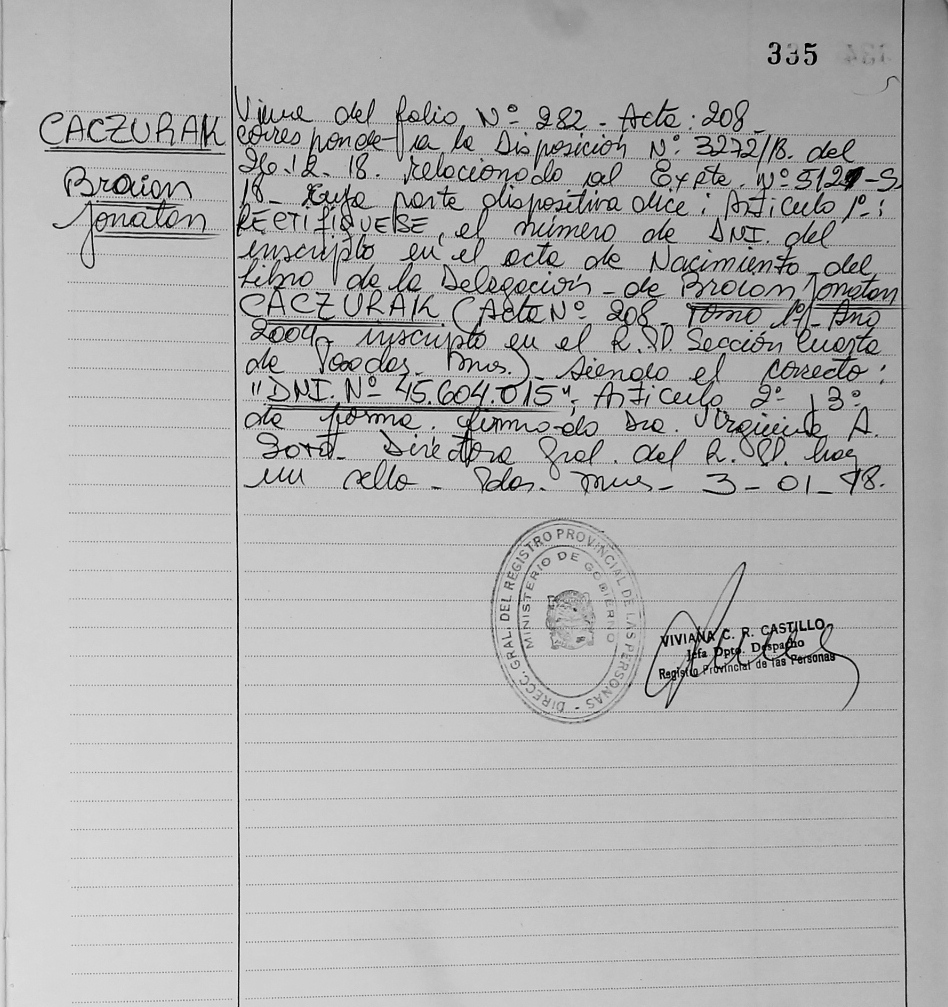 335
CACZURAK
Braian
Jonatan
Viene del folio Nº 282 - Acta: 208 -
corresponde a la Disposición Nº 3272/18. del
26.12.18. relacionado al Expte. Nº 5121-S
18 - Cuya parte dispositiva dice: Artículo 1º:
RECTIFIQUESE, el número de DNI. del
inscripto en el acta de Nacimiento del
Libro de la Delegación - de Braian Jonatan
CACZURAK (Acta Nº 208 - Tomo 1º - Año
2004 inscripto en el R.P. Sección Cuarta
de Posadas. Mnes.) - siendo el correcto:
"DNI. Nº 45.604.015", Artículo 2º 3º
de forma. firmado Dra. Virginia A.
Directora Gral. del R.P. hay
un sello - Pdas. Mnes - 3 - 01 - 18.
DIRECC. GRAL. DEL REGISTRO PROVINCIAL DE LAS PERSONAS -
MINISTERIO DE GOBIERNO
VIVIANA C. R. CASTILLO
Jefa Dpto. Despacho
Registro Provincial de las Personas